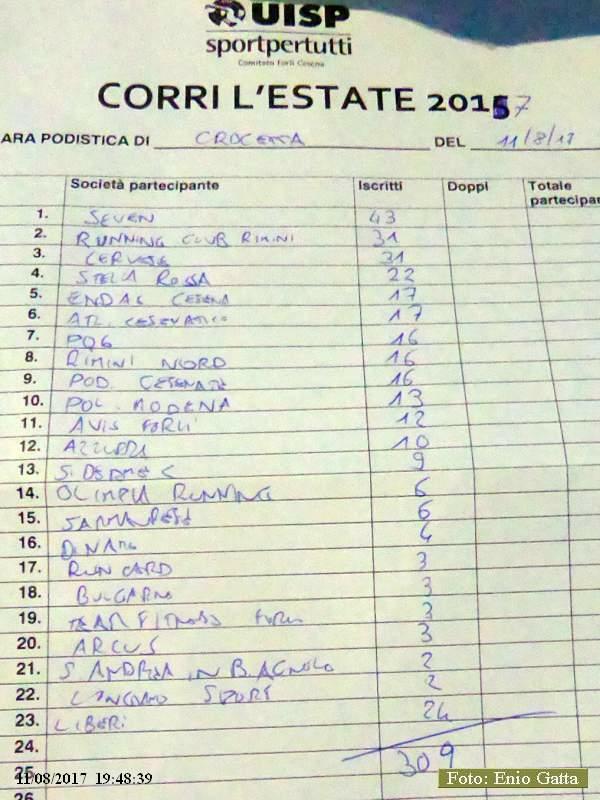 UISP
sportpertutti
Comitato Forlì Cesena
CORRI L'ESTATE 2017
ARA PODISTICA DI CROCETTA DEL 11/8/17
Società partecipante Iscritti Doppi Totale
partecipan
1. SEVEN 43
2. RUNNING CLUB RIMINI 31
3. CERVESE 31
4. STELLA ROSSA 22
5. ENDAS CESENA 17
6. ATL. CESENATICO 17
7. 16
8. RIMINI NORD 16
9. POD. CESENATE 16
10. POL. MODENA 13
11. AVIS FORLÌ 12
12. AZZURRA 10
13. S. 9
14. OLIMPIA RUNNING 6
15. SAMMARESE 6
16. DINAMO 4
17. RUN CARD 3
18. BULGARNO 3
19. TEAM FITNESS FORLI 3
20. ARCUS 3
21. S. ANDREA IN BAGNOLO 2
22. SPORT 2
23. LIBERI 24
24. 309
25.
26.
11/08/2017 19:48:39
Foto: Enio Gatta